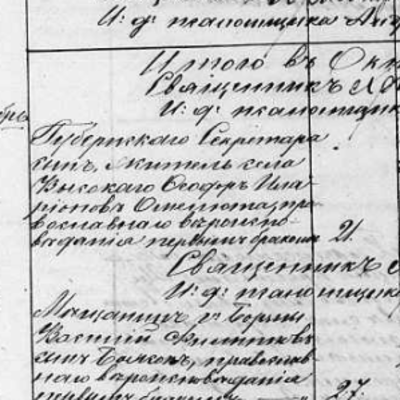 И. д. псаломщика
Итого въ Ок
Священникъ
И. д. псаломщика
брь
Губернскаго Секретаря
сынъ, житель села
Высокаго Ѳеодоръ Ила-
ріоновъ пра-
вославнаго вѣроиспо-
вѣданія первымъ бракомъ 21.
Священникъ
И. д. псаломщика
Мѣщанинъ г. Борзны
Василій Филиповъ
сынъ православ-
наго вѣроисповѣданія
первымъ бракомъ 27.